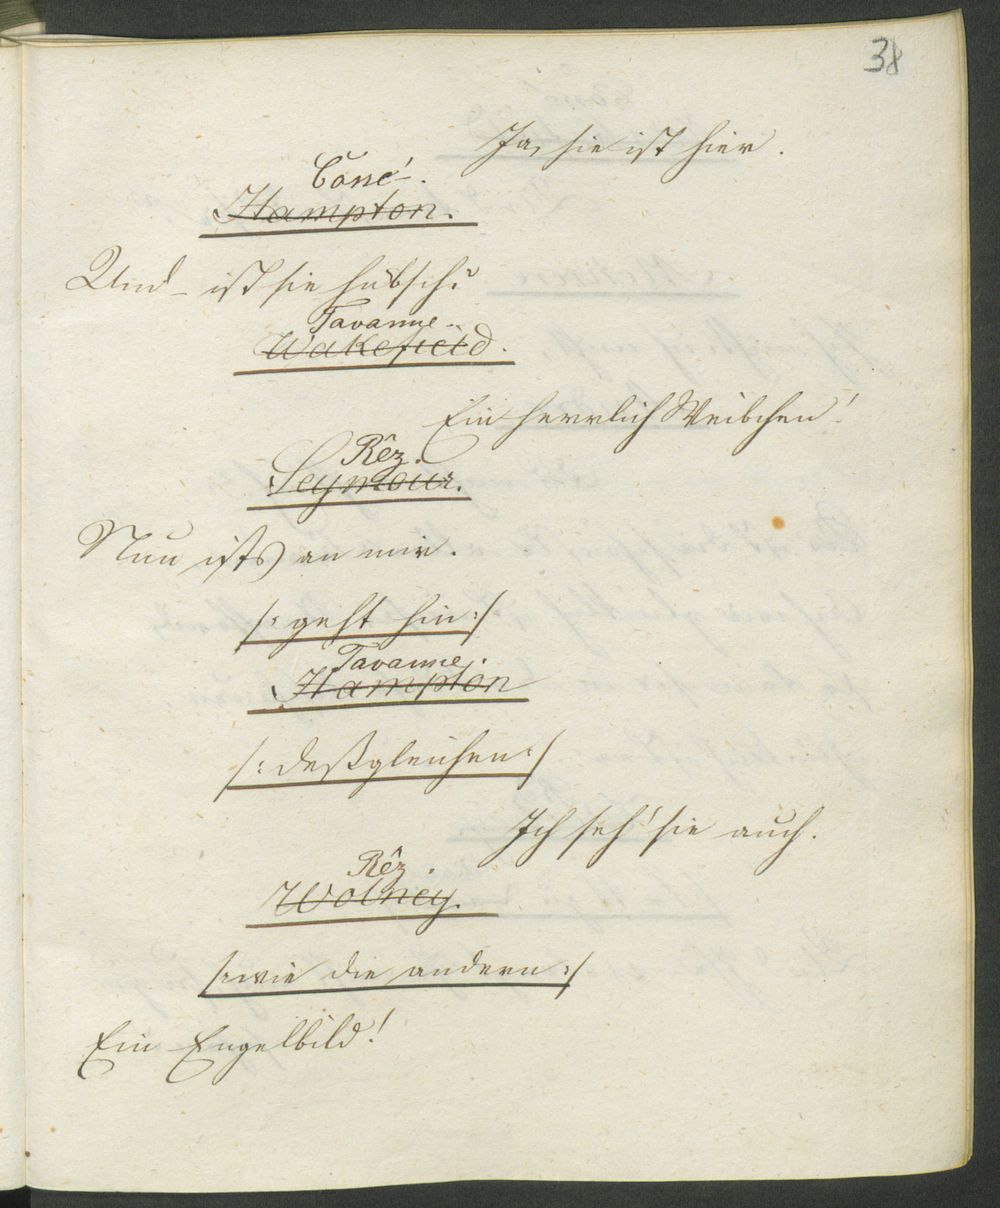 38
Ja, sie ist hier.
Cosse.
Hampton.
Und – ist sie hübsch?
Tavanne.
Wakefield.
Ein herrlich Weibchen!
Rêz.
Seymour.
Nun ists an mir.
/: geht hin :/
Tavanne.
Hampton
/: deßgleichen :/
Ich seh' sie auch.
Rêz.
Wolney.
/: wie die andern :/
Ein Engelbild!